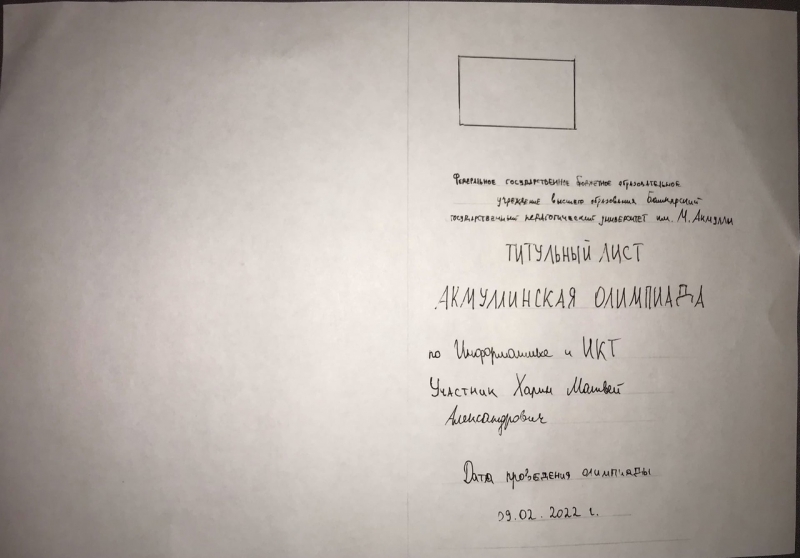 Федеральное государственное бюджетное образовательное
учреждение высшего образования Башкирский
государственный педагогический университет им. М. Акмуллы
ТИТУЛЬНЫЙ ЛИСТ
АКМУЛЛИНСКАЯ ОЛИМПИАДА
по Информатике и ИКТ
Участник Харин Матвей
Александрович
Дата проведения олимпиады
09.02.2022 г.